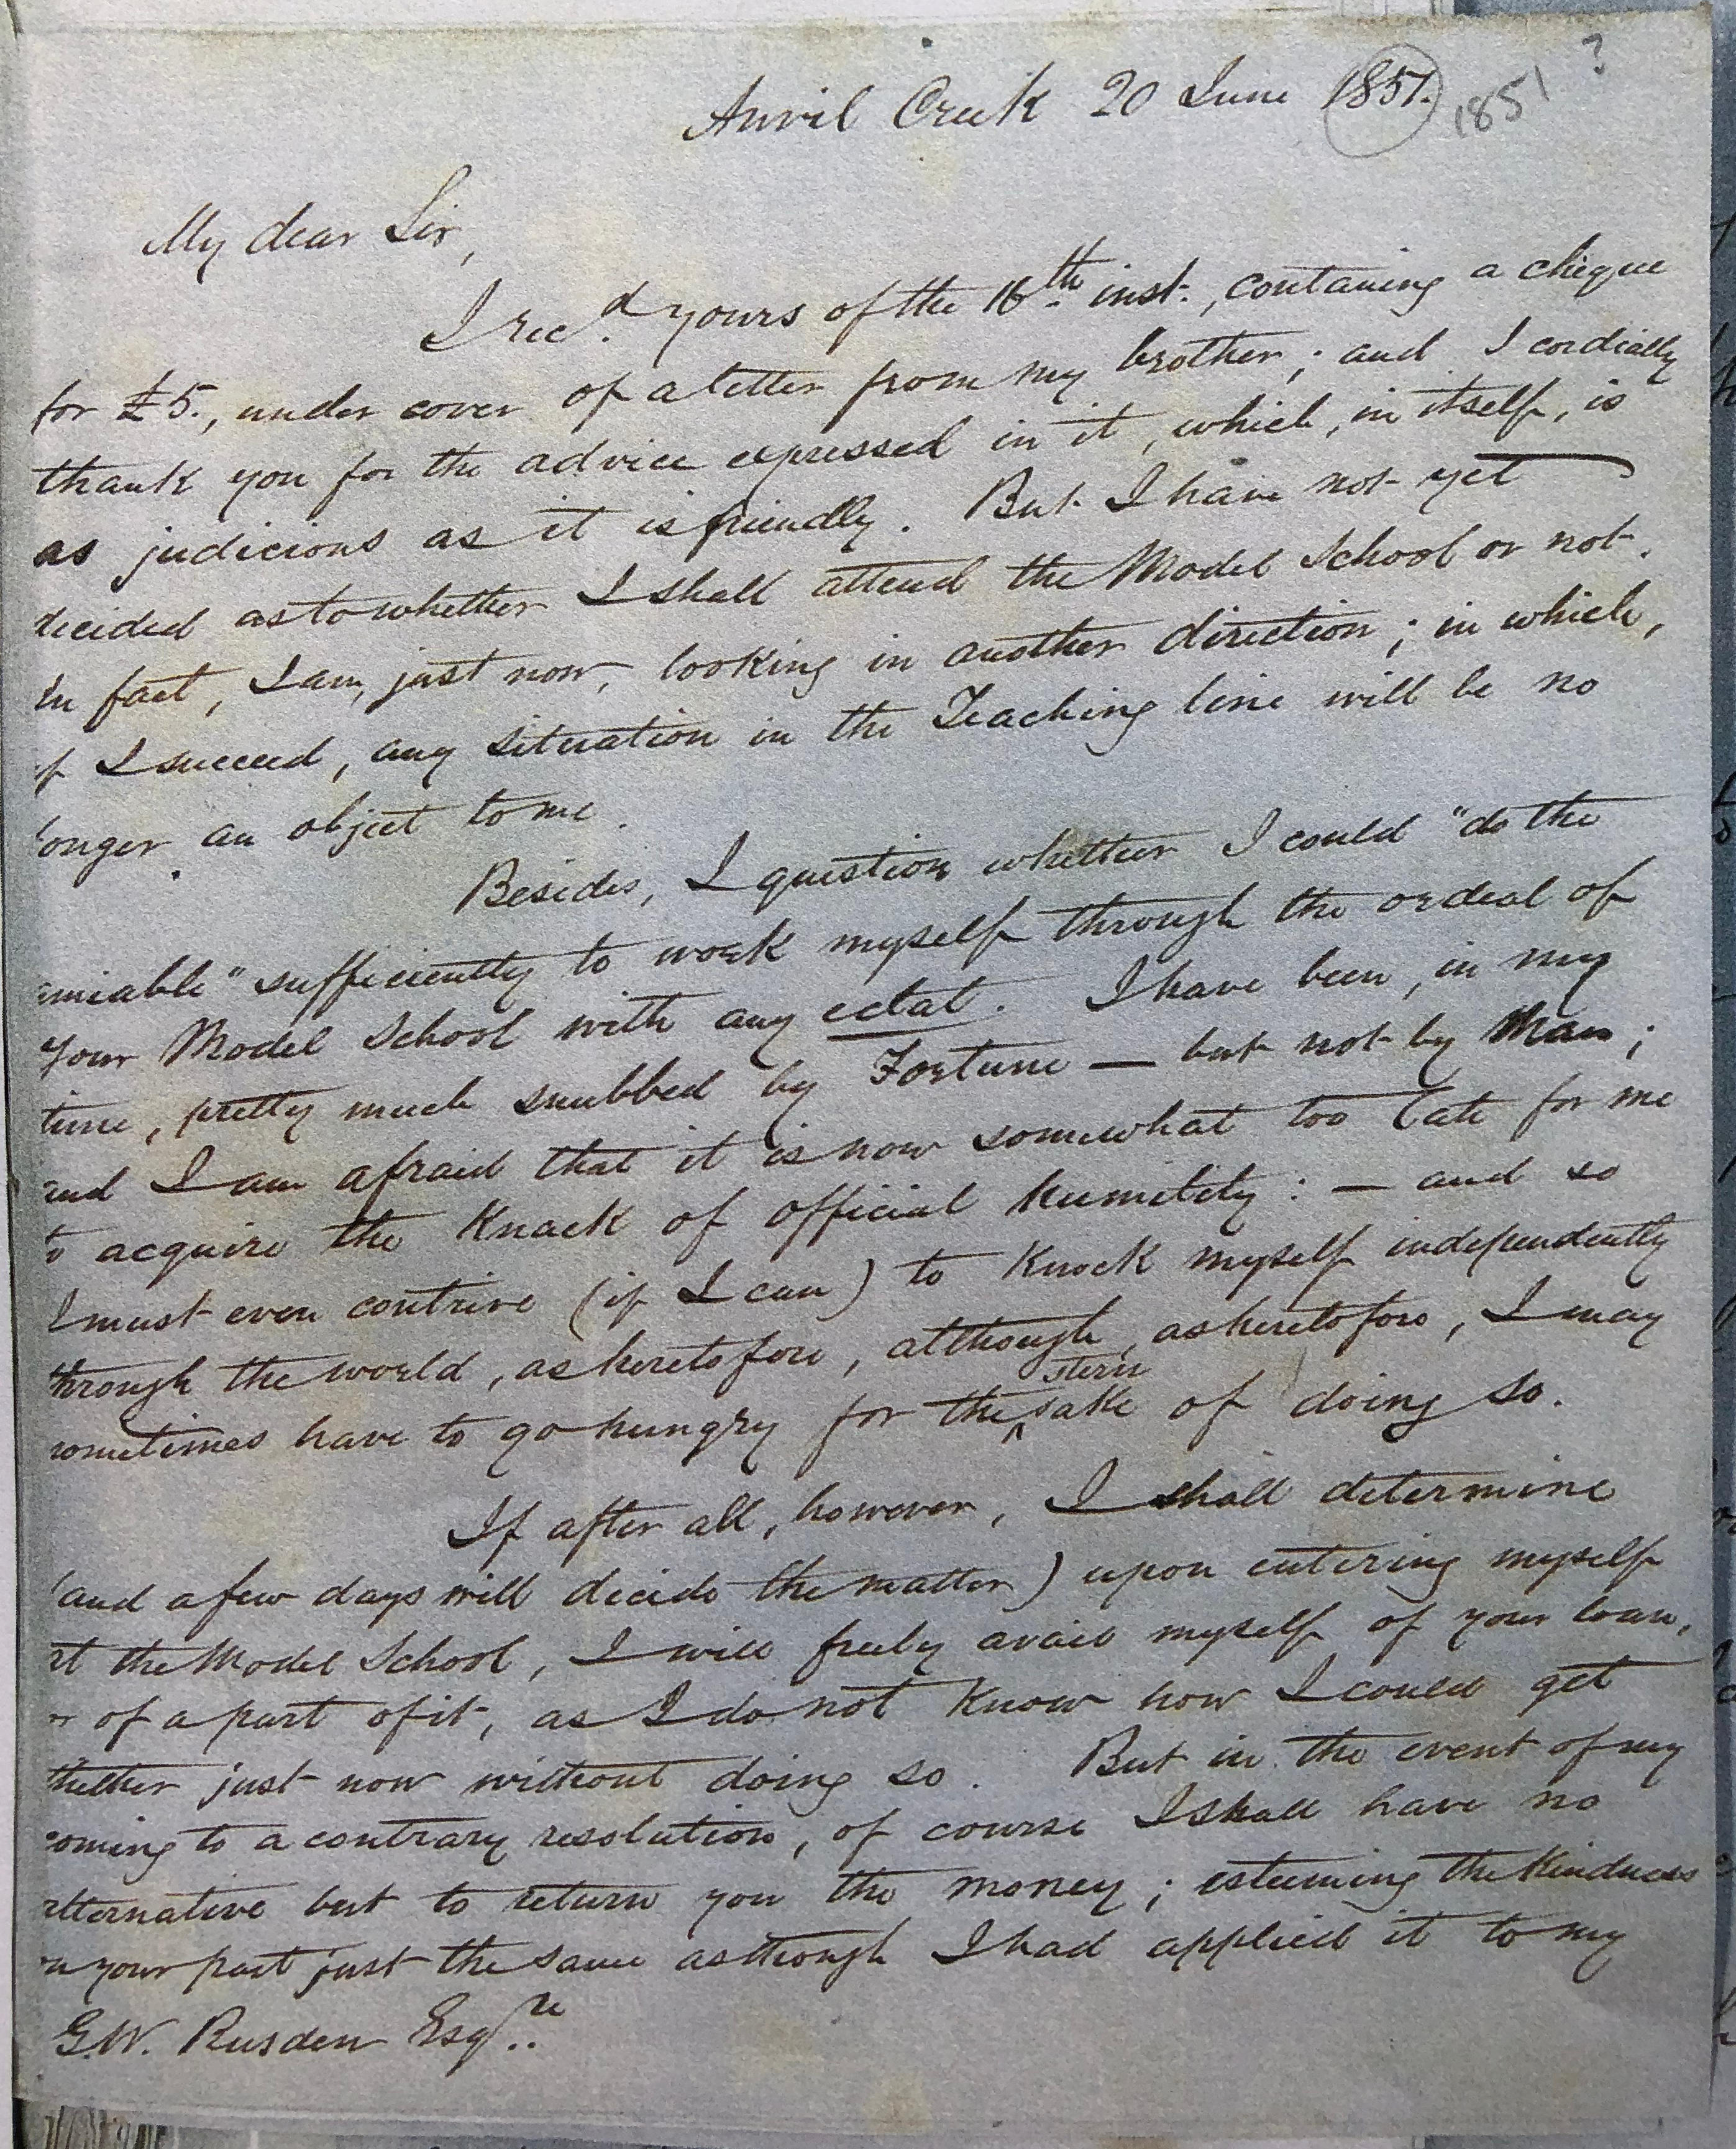 Anvil Creek 20 June 1851. 1851 ?
My dear Sir,
I rec.d yours of the 16th inst., containing a cheque
for £5., under cover of a letter from my brother; and I cordially
thank you for the advice expressed in it, which, in itself, is
as judicious as it is friendly. But I have not yet
decided as to whether I shall attend the Model School or not.
In fact, I am, just now, looking in another direction; in which,
if I succeed, any situation in the Teaching line will be no
longer an object to me.
Besides, I question whether I could "do the
amiable" sufficiently to work myself through the ordeal of
your Model School with any eclat. I have been, in my
time, pretty much snubbed by Fortune — but not by Man;
and I am afraid that it is now somewhat too late for me
to acquire the knack of official humility: — and so
I must even contrive (if I can) to knock myself independently
through the world, as heretofore, although, as heretofore, I may
sometimes have to go hungry for the stern sake of doing so.
If after all, however, I shall determine
(and a few days will decide the matter) upon entering myself
at the Model School, I will freely avail myself of your loan,
or of a part of it, as I do not know how I could get
thither just now without doing so. But in the event of my
coming to a contrary resolution, of course I shall have no
alternative but to return you the money; esteeming the kindness
on your part just the same as though I had applied it to my
G.W. Rusden Esqre.